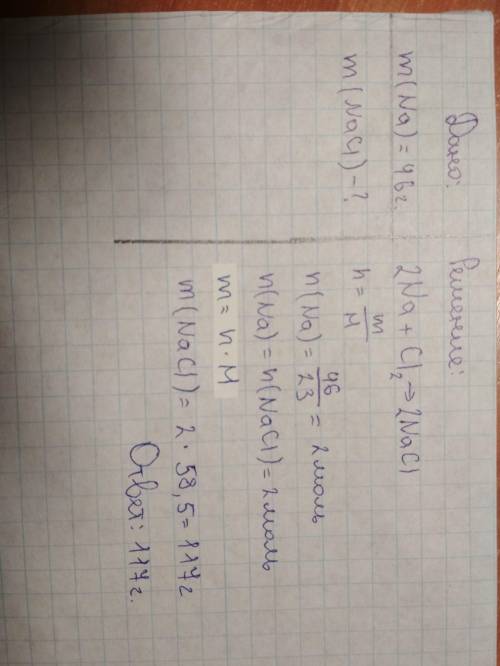 Дано:
m(Na) = 46 г.
m(NaCl) - ?
Решение:
2Na + Cl₂ → 2NaCl
n = m/M
n(Na) = 46/23 = 2 моль
n(Na) = n(NaCl) = 2 моль
m = n · M
m(NaCl) = 2 · 58,5 = 117 г
Ответ: 117 г.